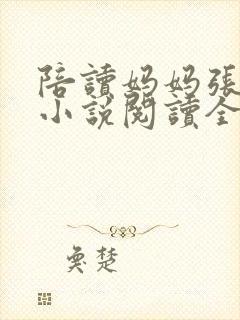 陪讀媽媽張
小說閱讀全
奐楚